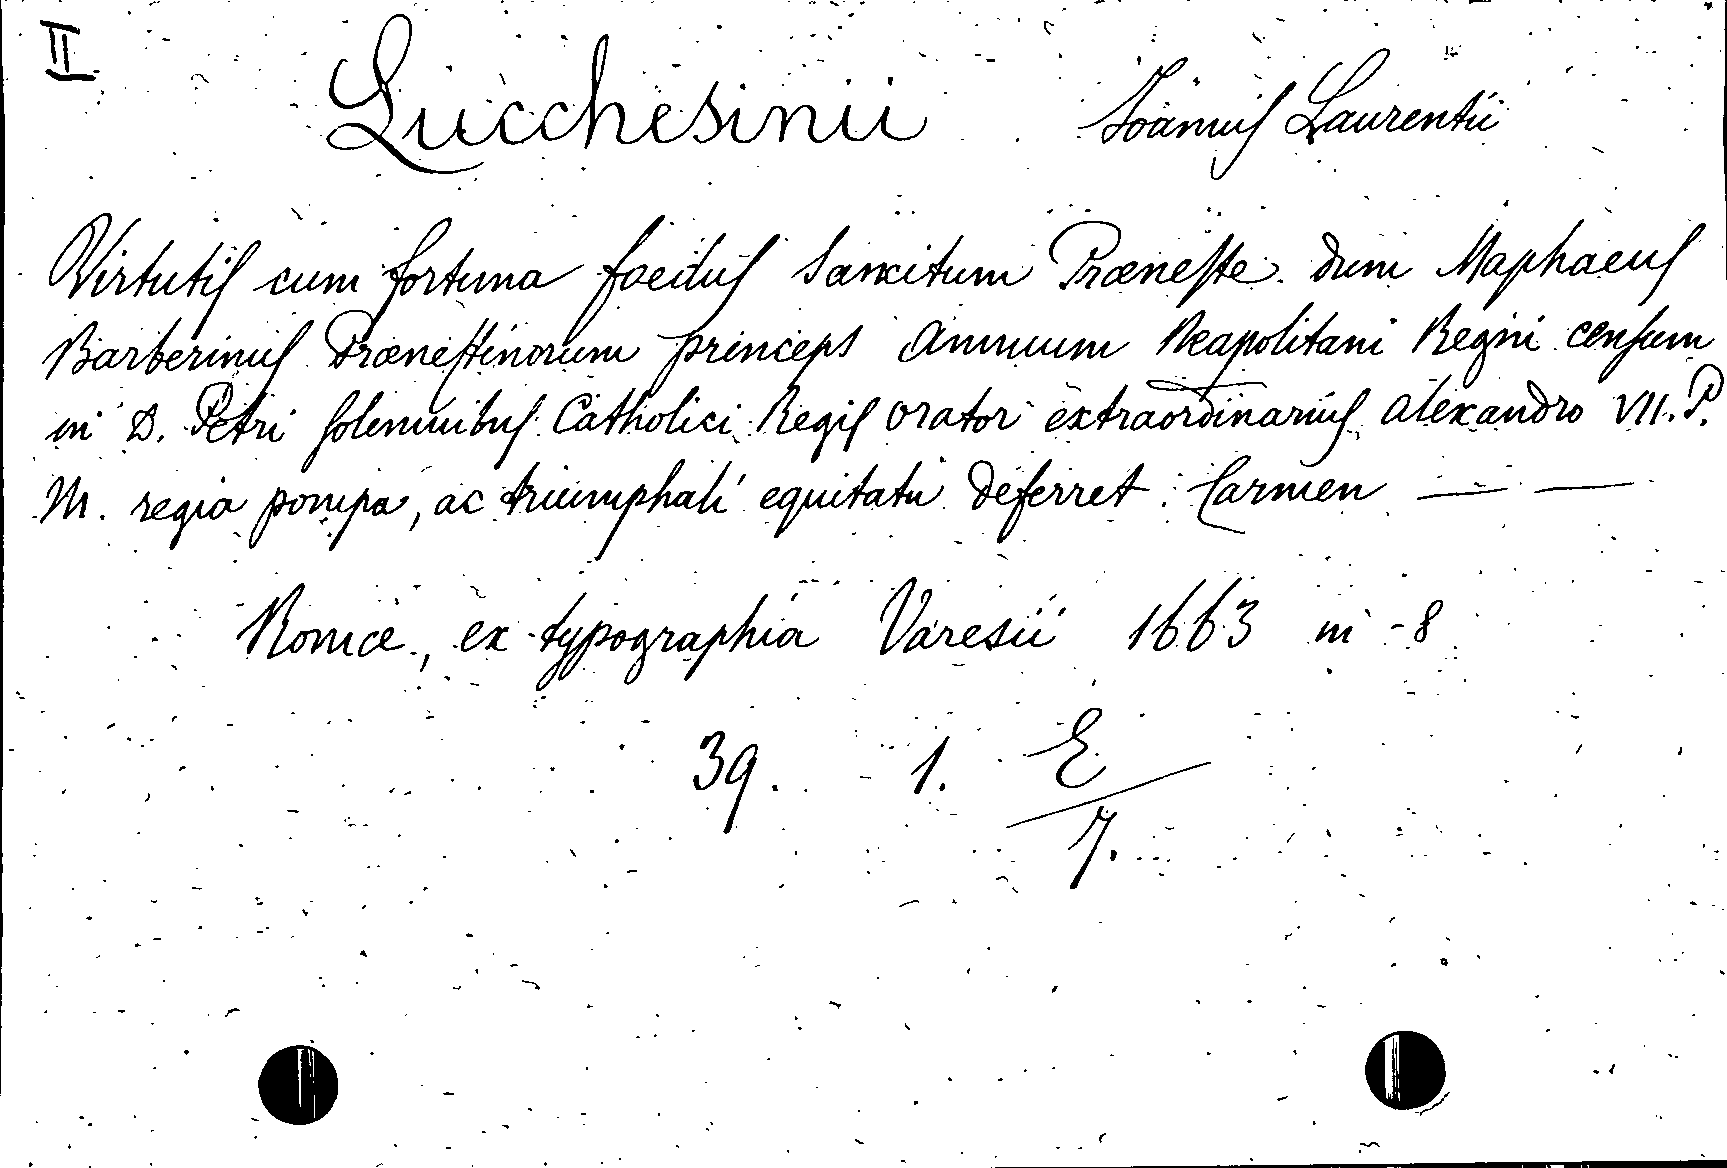 II
Lucchesinii Joannis Laurentii
Virtutis cum fortuna foedus Sancitum Præneste dum Maphaeus
Barberinus Prænestinorum princeps Annuum Neapolitani Regni censum
in D. Petri solemnibus Catholici Regis orator extraordinarius Alexandro VII. P.
M. regia pompa, ac triumphali equitatu deferret: Carmen — —
Romæ, ex typographia Varesii 1663 in - 8
39. 1. E
7.